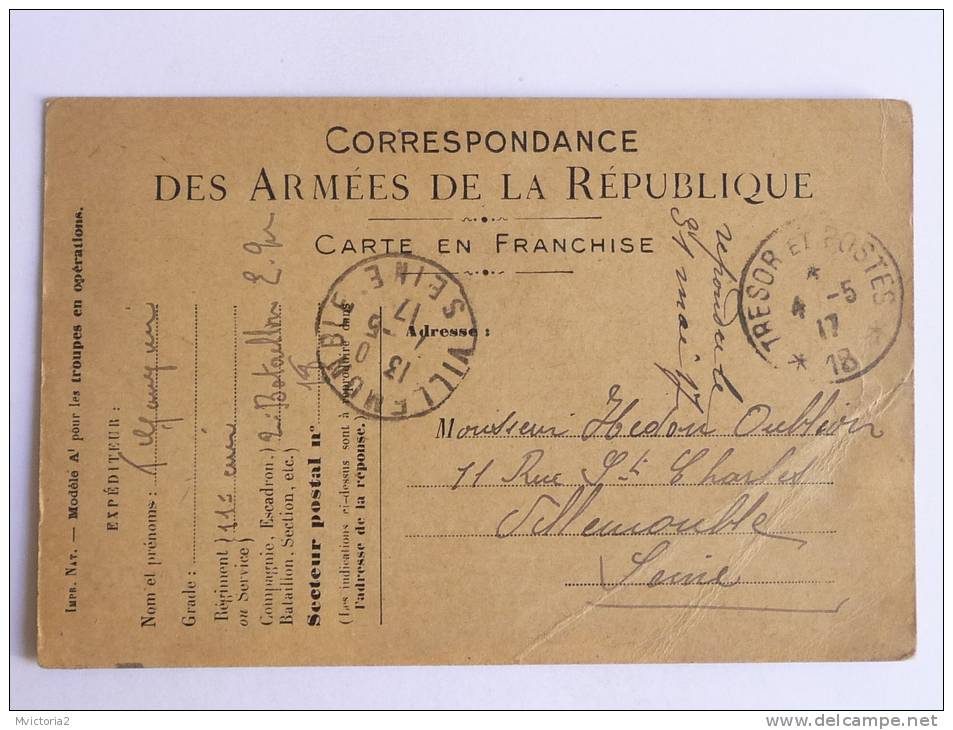 CORRESPONDANCE
DES ARMÉES DE LA RÉPUBLIQUE
CARTE EN FRANCHISE
répondu le
mai 17
TRESOR ET POSTES
* 4 -5
17
* 18 *
VILLEMOMBLE SEINE
13 50
1-5
17
Adresse :
Monsieur Hedon Oublivin
11 Rue St Charles
Villemomble
Seine
IMPR. NAT. — Modèle A1 pour les troupes en opérations.
EXPÉDITEUR :
Nom et prénoms :
Grade :
Régiment } 115
ou Service }
Compagnie, Escadron. } Bataillon
Bataillon, Section, etc. }
Secteur postal n°
(Les indications ci-dessus sont à reproduire dans
l'adresse de la réponse.)
Mvictoria2
delcampe.net